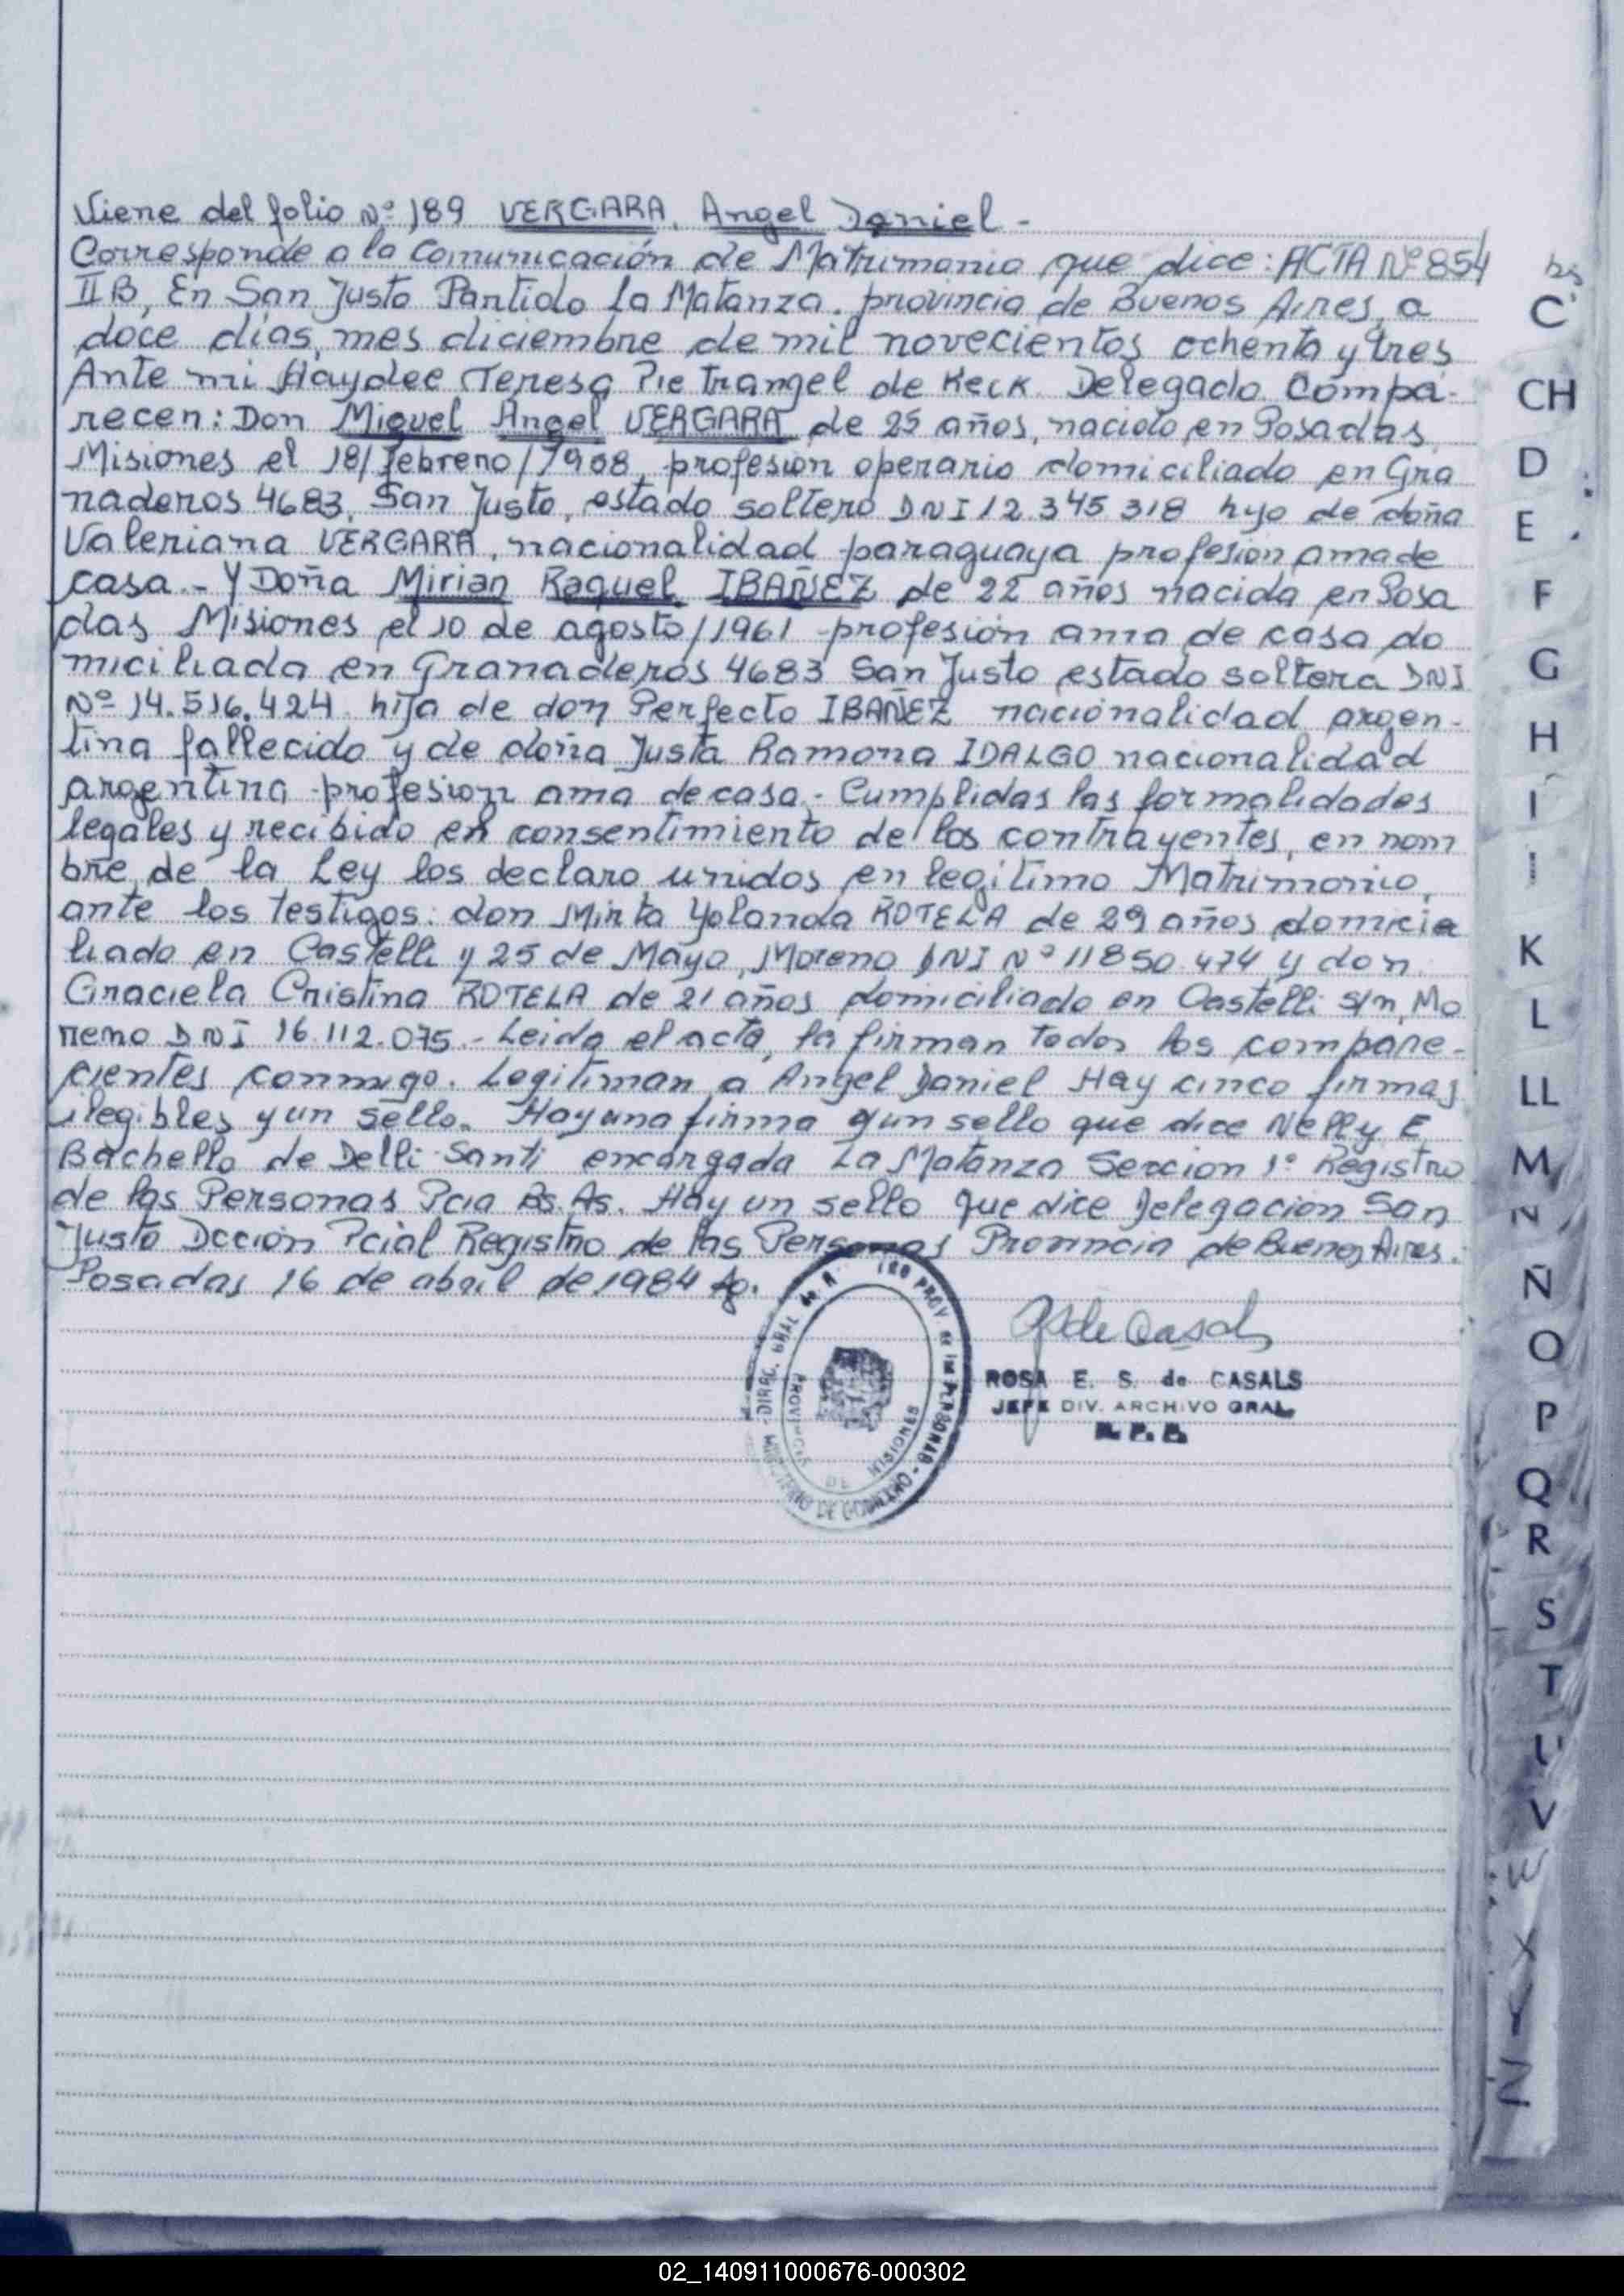 Viene del folio Nº 189 VERGARA, Angel Daniel -
Corresponde a la Comunicación de Matrimonio que dice: ACTA Nº 854
II B, En San Justo Partido La Matanza, provincia de Buenos Aires, a
doce días, mes diciembre de mil novecientos ochenta y tres
Ante mi Haydee Teresa Pietrangel de Keck Delegado Compa-
recen: Don Miguel Angel VERGARA de 25 años, nacido en Posadas
Misiones el 18/febrero/1958, profesion operario domiciliado en Gra
naderos 4683, San Justo, estado soltero DNI 12.345.318 hijo de doña
Valeriana VERGARA, nacionalidad paraguaya profesion ama de
casa.- Y Doña Mirian Raquel IBAÑEZ de 22 años nacida en Posa
das Misiones el 10 de agosto/1961 profesión ama de casa do
miciliada en Granaderos 4683 San Justo estado soltera DNI
Nº 14.516.424 hija de don Perfecto IBAÑEZ nacionalidad argen-
tina fallecido y de doña Justa Ramona IDALGO nacionalidad
argentina profesion ama de casa.- Cumplidas las formalidades
legales y recibido el consentimiento de los contrayentes, en nom
bre de la Ley los declaro unidos en legítimo Matrimonio,
ante los testigos: don Mirta Yolanda ROTELA de 29 años domici
liado en Castelli y 25 de Mayo, Moreno DNI Nº 11850.474 y don
Graciela Cristina ROTELA de 21 años domiciliado en Castelli s/n, Mo
reno DNI 16.112.075.- Leida el acta, la firman todos los compare-
cientes conmigo. Legitiman a Angel Daniel Hay cinco firmas
ilegibles y un sello. Hay una firma y un sello que dice Nelly E
Bachello de Delli Santi encargada La Matanza Seccion 1º Registro
de las Personas Pcia Bs. As. Hay un sello que dice Delegacion San
Justo Dccion Pcial Registro de las Personas Provincia de Buenos Aires.
Posadas 16 de abril de 1984
ROSA E. S. de CASALS
JEFE DIV. ARCHIVO GRAL.
R. P. P.
PROVINCIA DE MISIONES
C
CH
D
E
F
G
H
I
K
L
LL
M
N
Ñ
O
P
Q
R
S
T
U
V
W
X
Y
Z
02_140911000676-000302